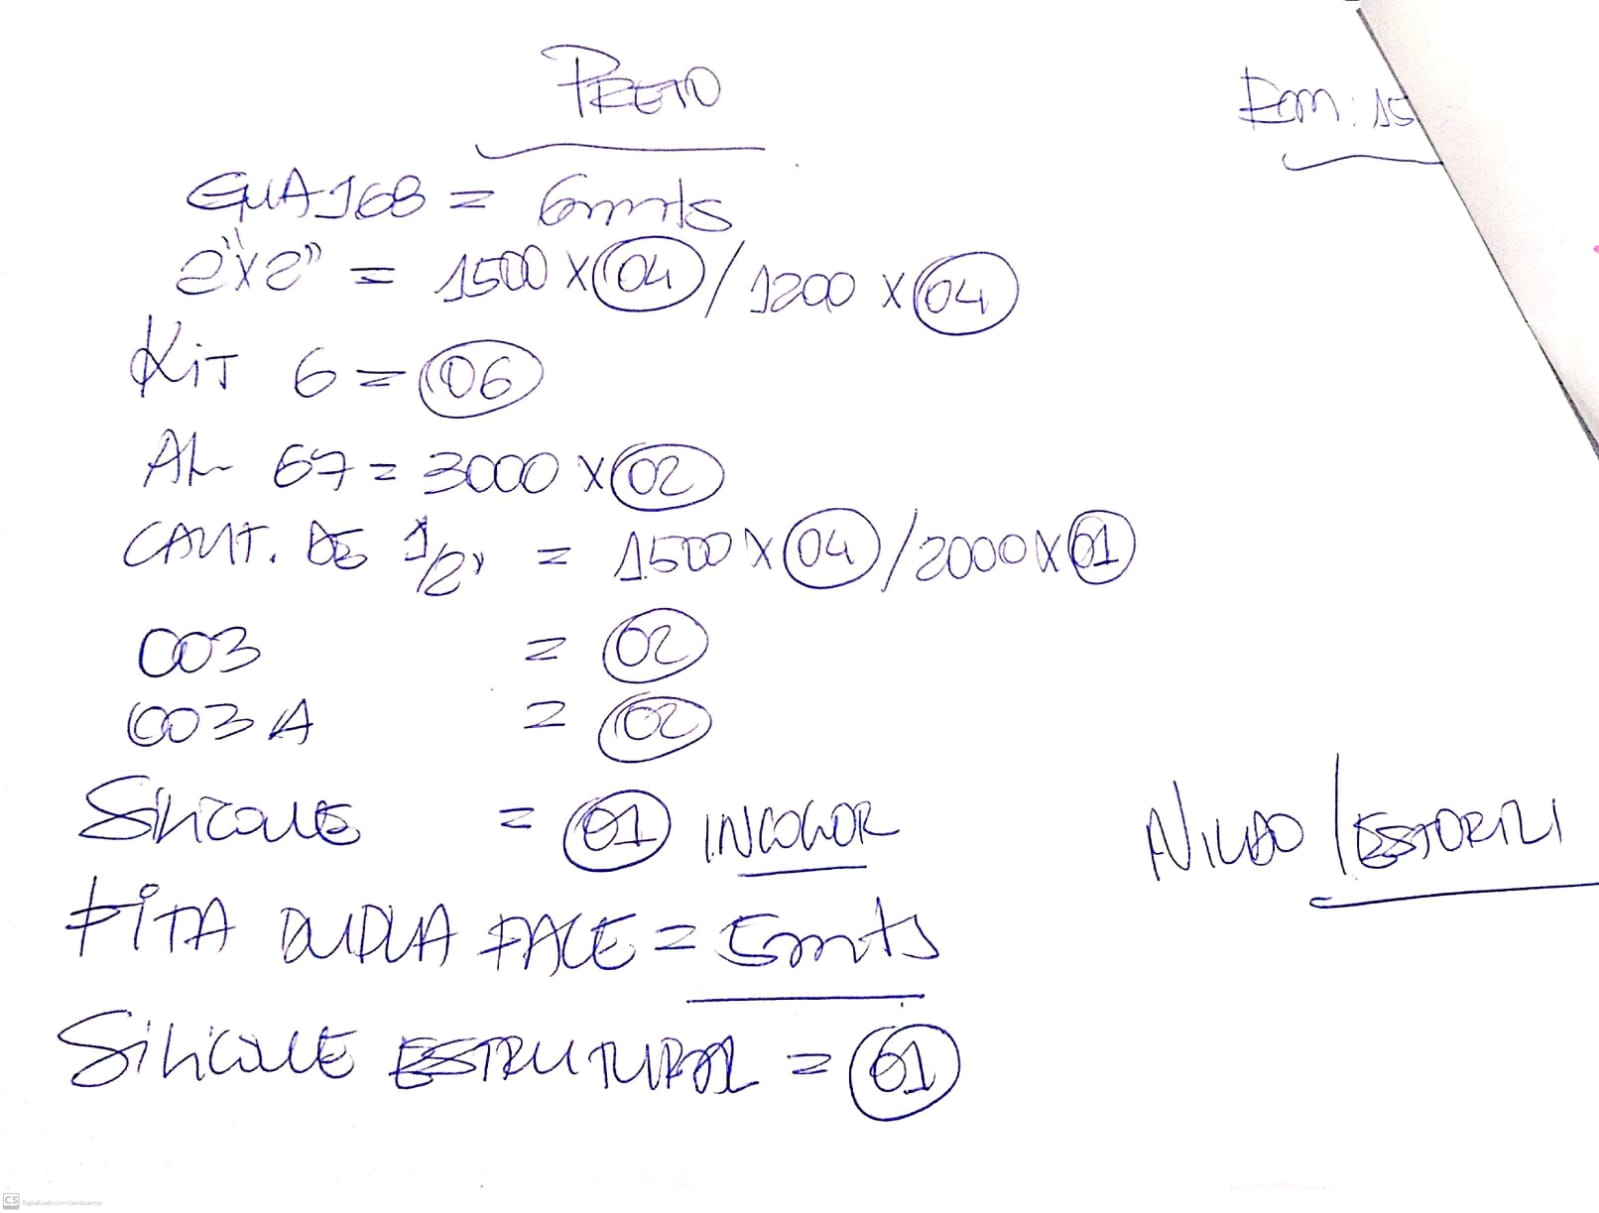 PRETO
Rom: 15
GUA168 = 6mts
2"x2" = 1500 x 04 / 1200 x 04
KiT 6 = 06
AL 67 = 3000 x 02
CANT. DE 1/2" = 1500 x 04 / 2000 x 01
003 = 02
003A = 02
SiLICONE = 01 INCOLOR
NILDO / ESTORILI
FiTA DUPLA FACE = 5mts
SiLICONE ESTRUTURAL = 01
CS Digitalizado com CamScanner